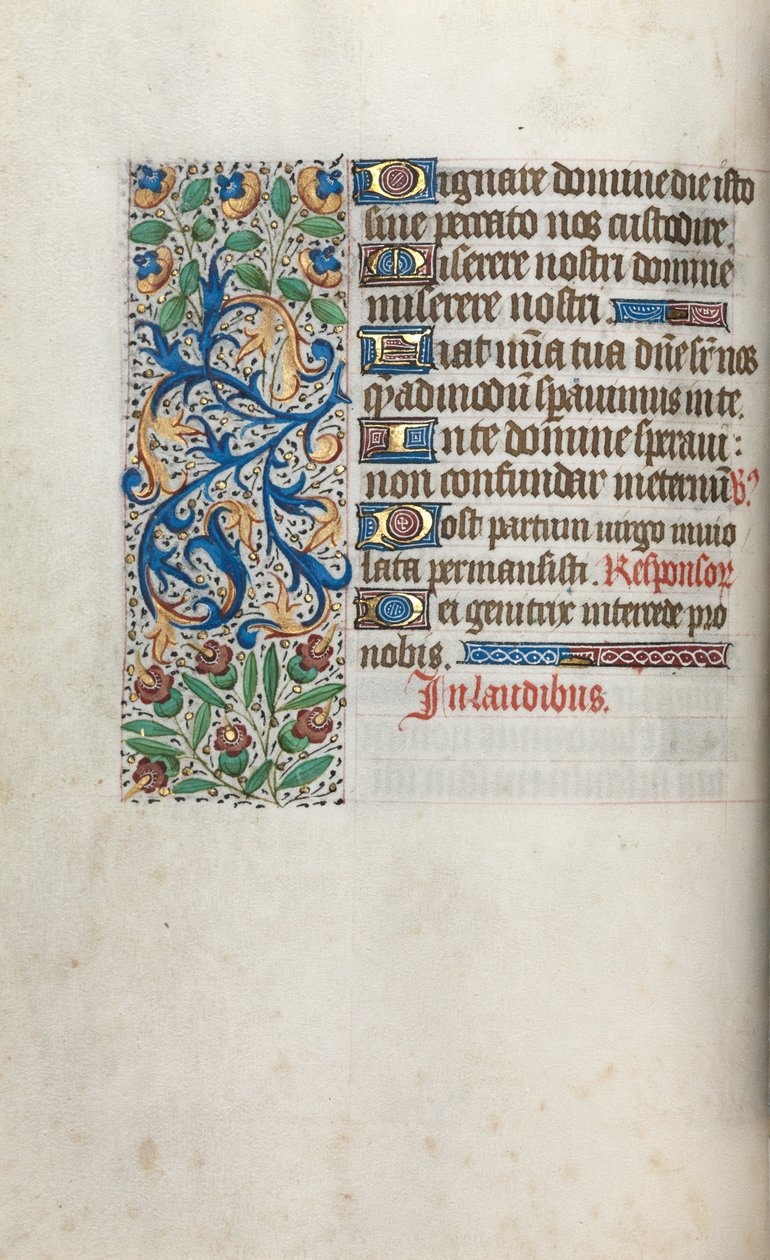 Dignare domine die isto
sine peccato nos custodire.
Miserere nostri domine
miserere nostri.
Fiat mīa tua dn̄e sr̄ nos
q̄admodū sp̄auimus in te.
In te domine speraui:
non confundar in eternū ꝟ
Post partum uirgo inuio
lata permansisti. Responsor
Dei genitrix intercede pro
nobis.
In laudibus.